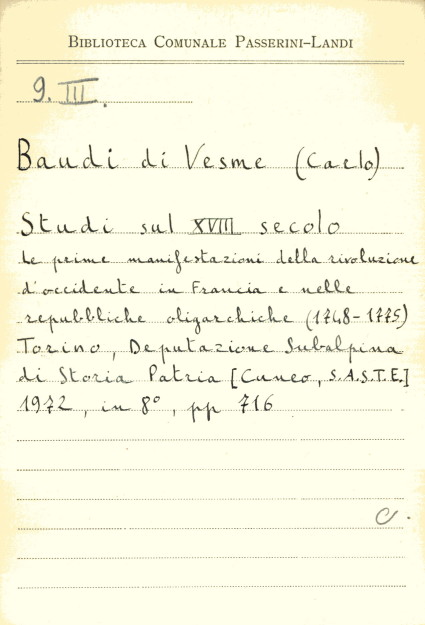 BIBLIOTECA COMUNALE PASSERINI-LANDI
9. III.
Baudi di Vesme (Carlo)
Studi sul XVIII secolo
Le prime manifestazioni della rivoluzione
d'occidente in Francia e nelle
repubbliche oligarchiche (1748-1775)
Torino, Deputazione Subalpina
di Storia Patria [Cuneo, S.A.S.T.E.]
1972, in 8°, pp 716
C.